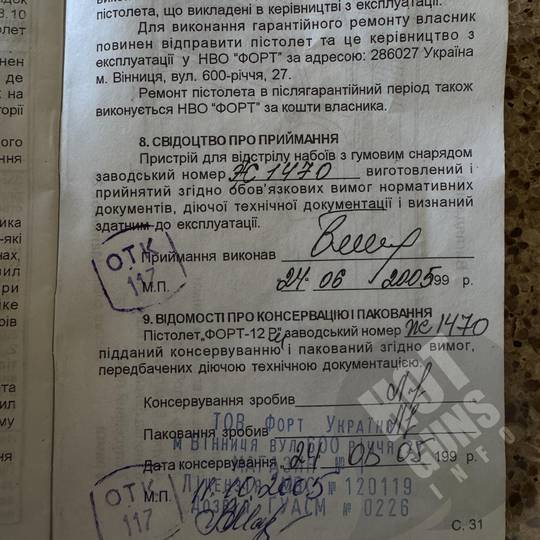 пістолета, що викладені в керівництві з експлуатації.
Для виконання гарантійного ремонту власник
повинен відправити пістолет та це керівництво з
експлуатації у НВО "ФОРТ" за адресою: 286027 Україна
м. Вінниця, вул. 600-річчя, 27.
Ремонт пістолета в післягарантійний період також
виконується НВО "ФОРТ" за кошти власника.
8. СВІДОЦТВО ПРО ПРИЙМАННЯ
Пристрій для відстрілу набоїв з гумовим снарядом
заводський номер Ж 1470 виготовлений і
прийнятий згідно обов'язкових вимог нормативних
документів, діючої технічної документації і визнаний
здатним до експлуатації.
ОТК
117
Приймання виконав
М.П. 24 06 2005 199 р.
9. ВІДОМОСТІ ПРО КОНСЕРВАЦІЮ І ПАКОВАННЯ
Пістолет „ФОРТ-12 Р" заводський номер Ж 1470
підданий консервуванню і пакований згідно вимог,
передбачених діючою технічною документацією.
Консервування зробив
ТОВ. Форт Україна
Паковання зробив
м ВІННИЦЯ ВУЛ 600 РІЧЧЯ
Дата консервування 24 06 05 199 р.
ОТК
117
М.П. 11.10.2005
№ 120119
ДОЗВІЛ ГУАСМ № 0226
С. 31
HOT
GUNS
INFO